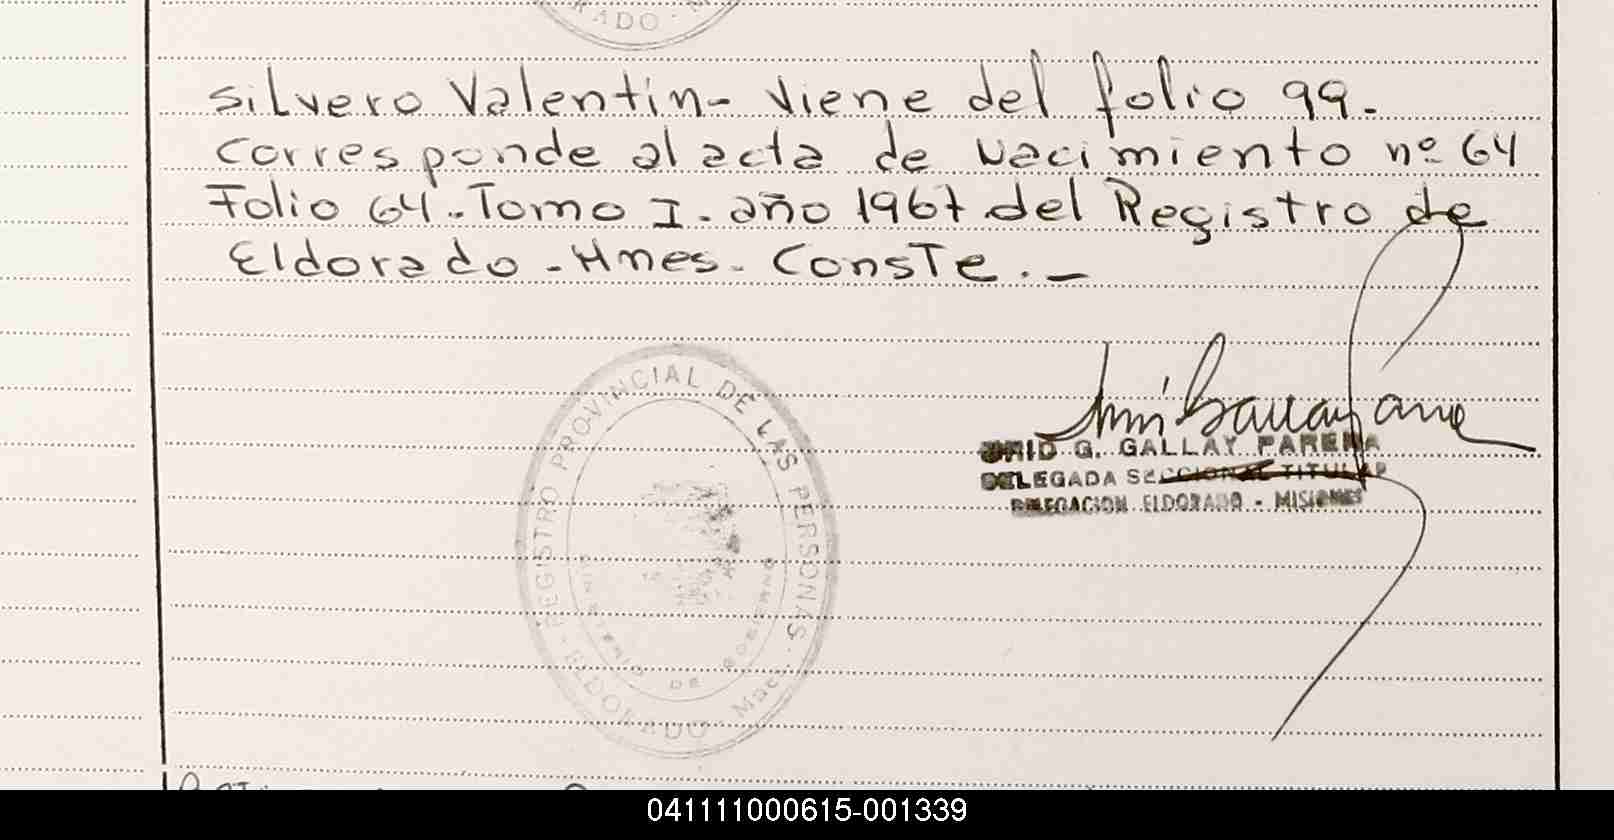 RADO · M
Silvero Valentín - Viene del folio 99.
Corresponde al acta de Nacimiento nº 64
Folio 64. Tomo I. año 1967 del Registro de
Eldorado - Mnes. Conste. _
REGISTRO PROVINCIAL DE LAS PERSONAS
MINISTERIO DE GOBIERNO
ELDORADO - Mnes.
G. GALLAY PAREMA
DELEGADA SECCIONAL TITULAR
DELEGACION ELDORADO - MISIONES
041111000615-001339